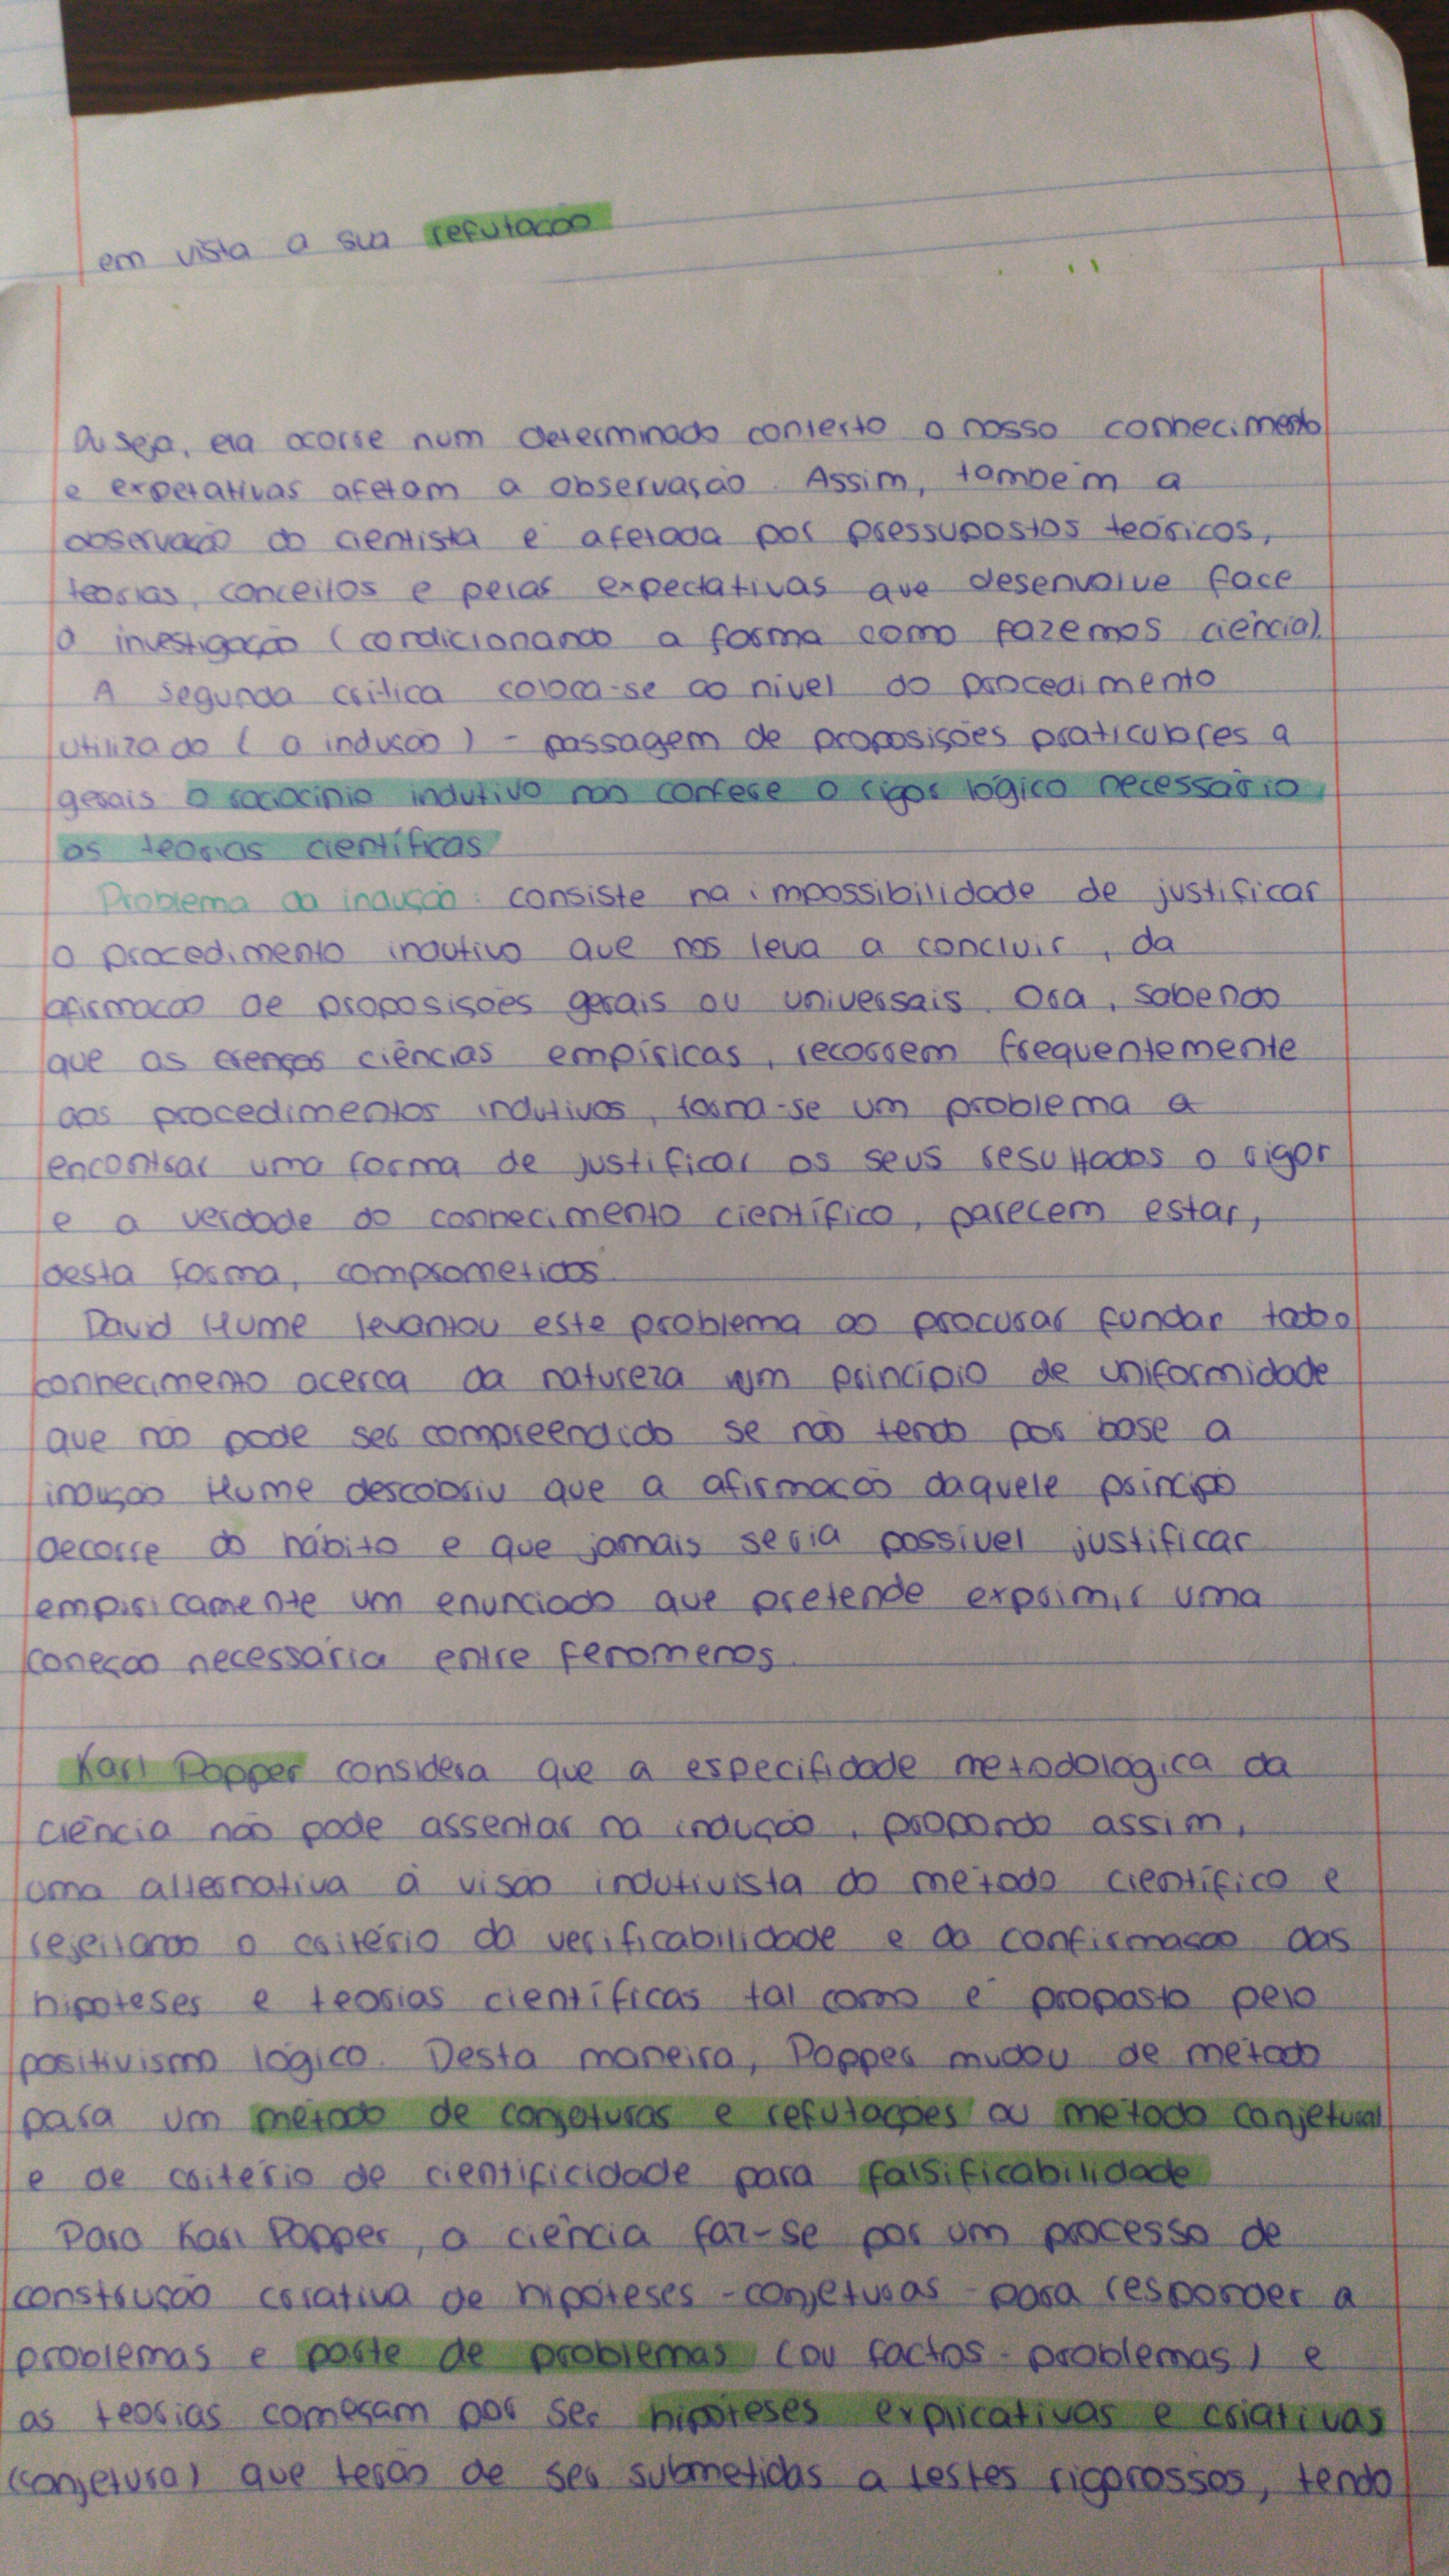 em vista a sua refutação
Ou seja, ela ocorre num determinado contexto o nosso conhecimento
e expetativas afetam a observação. Assim, também a
observação do cientista é afetada por pressupostos teóricos,
teorias, conceitos e pelas expectativas que desenvolve face
à investigação (condicionando a forma como fazemos ciência).
A segunda crítica coloca-se ao nível do procedimento
utilizado (a indução) - passagem de proposições praticulares a
gerais o raciocínio indutivo não confere o rigor lógico necessário
às teorias científicas
Problema da indução: consiste na impossibilidade de justificar
o procedimento indutivo que nos leva a concluir, da
afirmação de proposições gerais ou universais. Ora, sabendo
que as ciências empíricas, recorrem frequentemente
aos procedimentos indutivos, torna-se um problema a
encontrar uma forma de justificar os seus resultados o rigor
e a verdade do conhecimento científico, parecem estar,
desta forma, comprometidos.
David Hume levantou este problema ao procurar fundar todo
conhecimento acerca da natureza num princípio de uniformidade
que não pode ser compreendido se não tendo por base a
indução Hume descobriu que a afirmação daquele princípio
decorre do hábito e que jamais seria possível justificar
empiricamente um enunciado que pretende exprimir uma
coneção necessária entre fenómenos.
Karl Popper considera que a especifidade metodológica da
ciência não pode assentar na indução, propondo assim,
uma alternativa à visão indutivista do método científico e
rejeitando o critério da verificabilidade e da confirmação das
hipóteses e teorias científicas tal como é proposto pelo
positivismo lógico. Desta maneira, Popper mudou de método
para um método de conjeturas e refutações ou método conjetural
e de critério de cientificidade para falsificabilidade
Para Karl Popper, a ciência faz-se por um processo de
construção criativa de hipóteses - conjeturas - para responder a
problemas e parte de problemas (ou factos - problemas) e
as teorias começam por ser hipóteses explicativas e criativas
(conjetura) que terão de ser submetidas a testes rigorossos, tendo